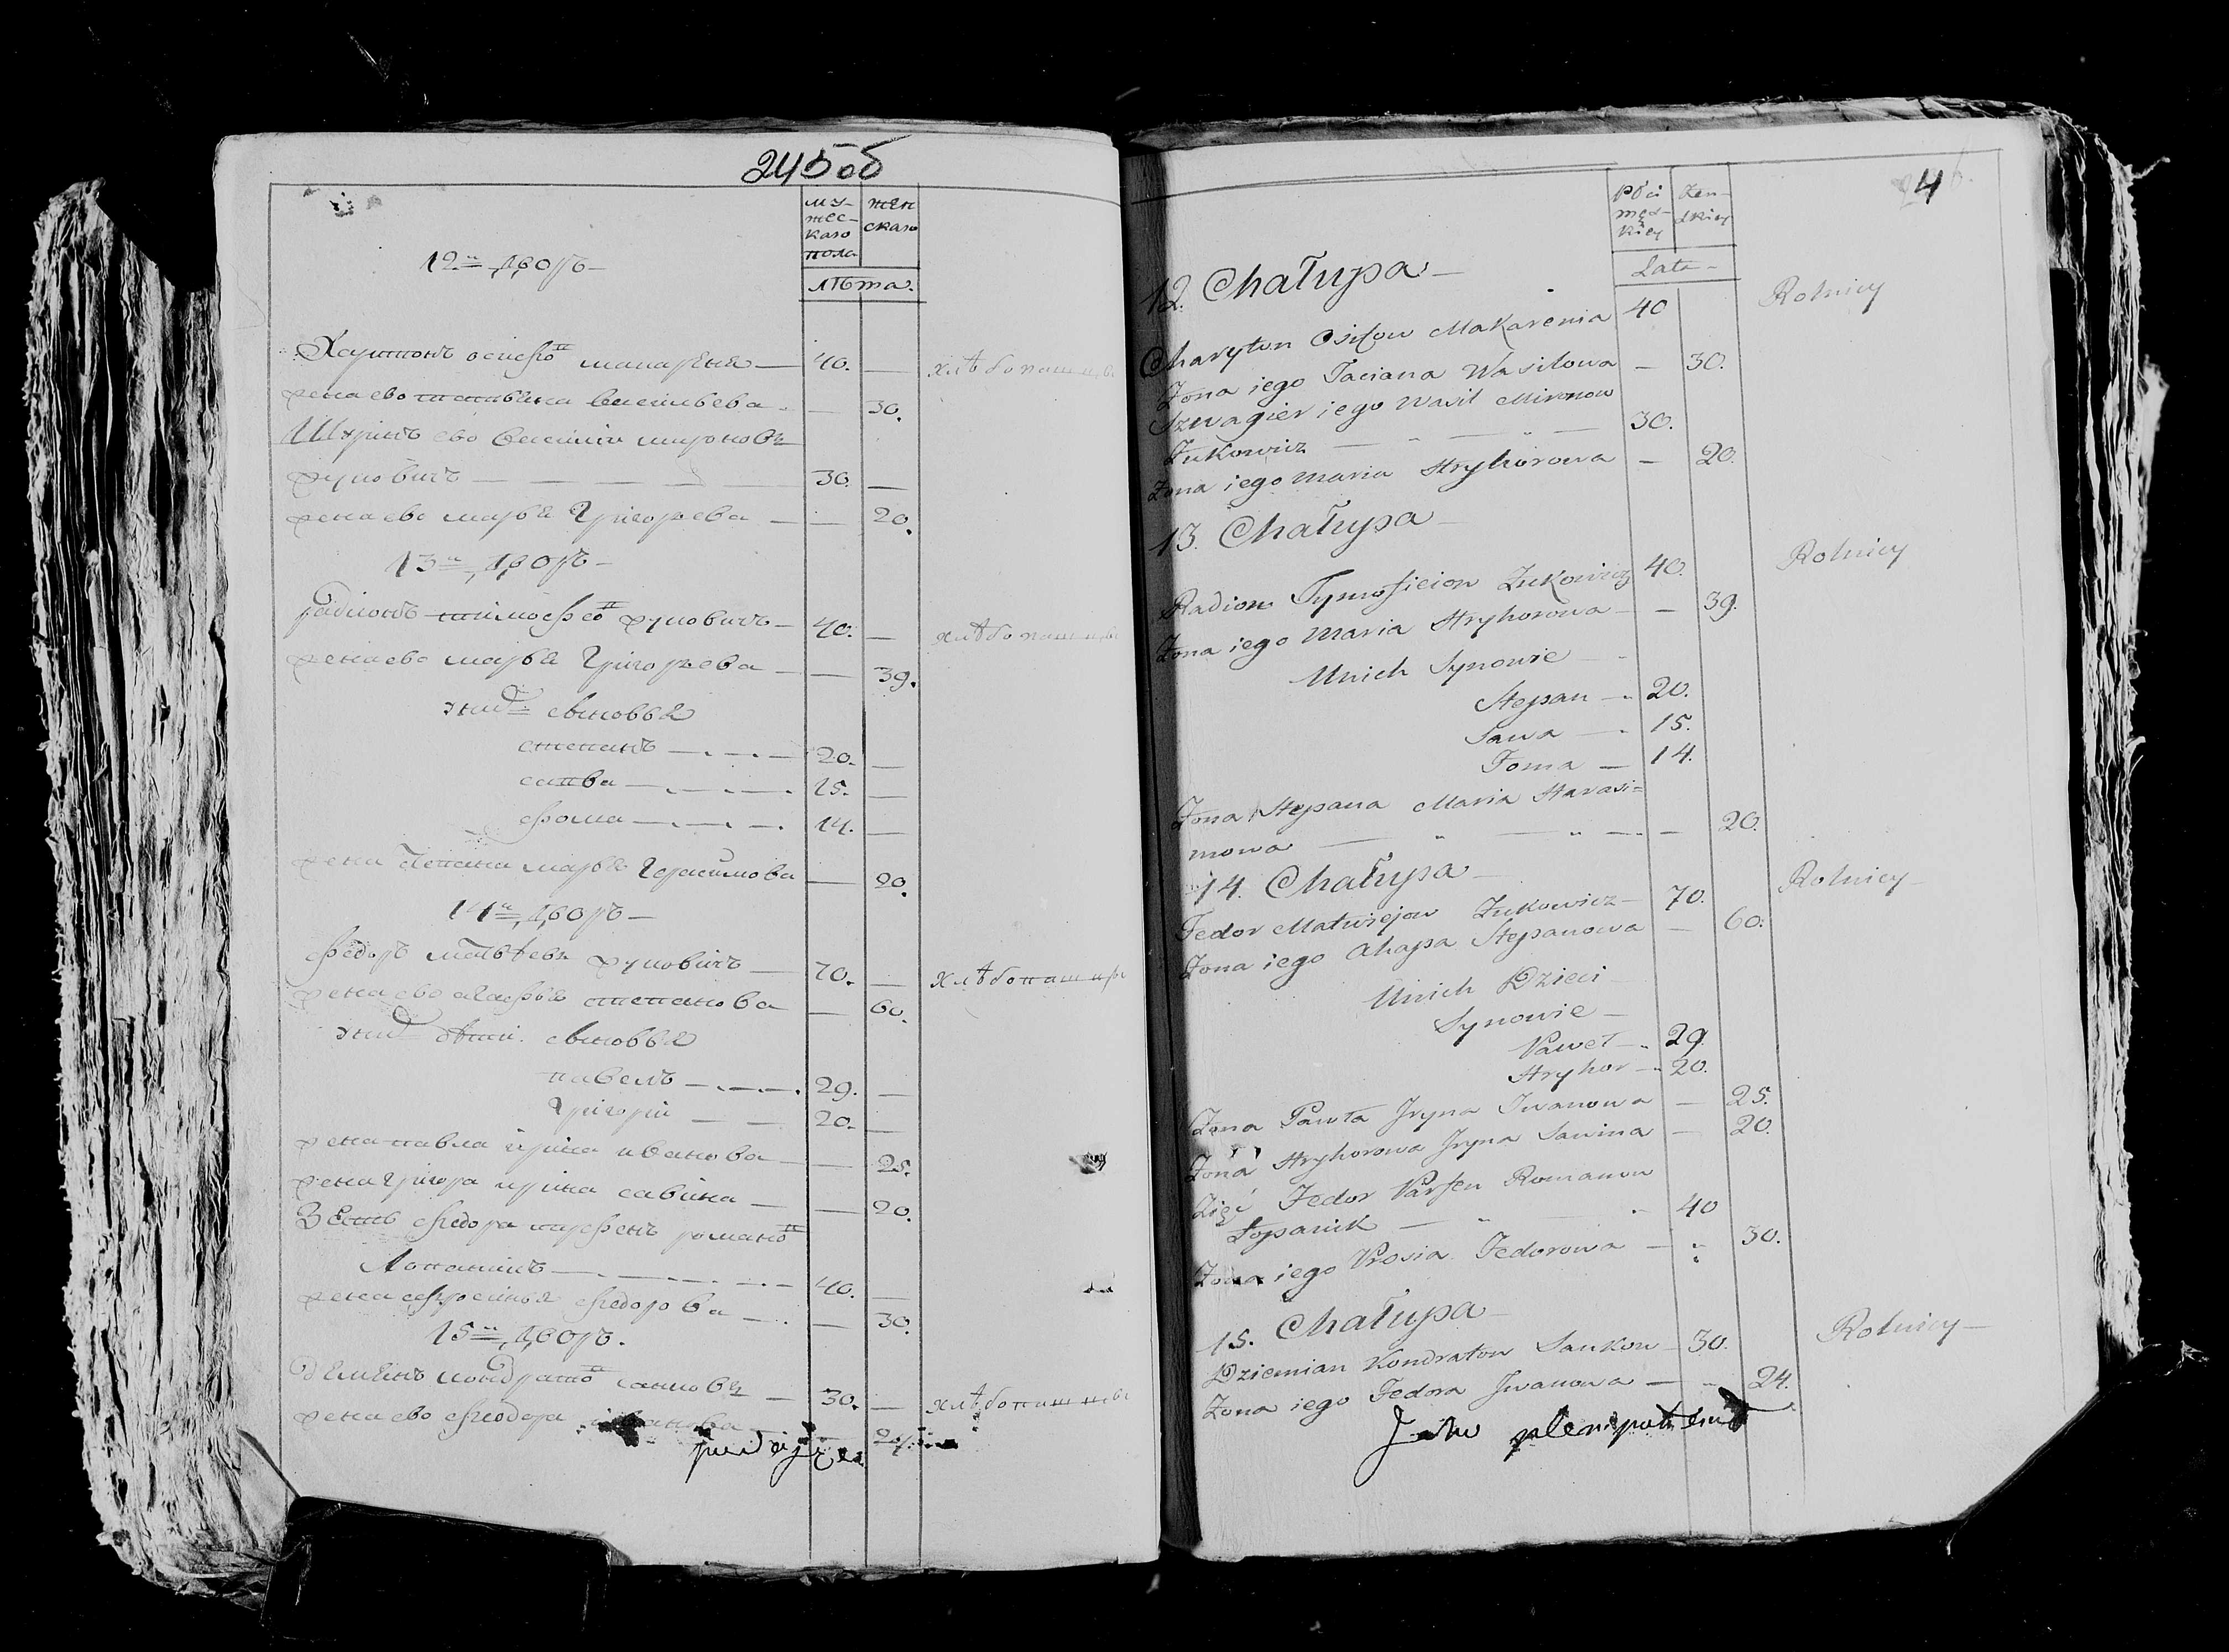 245об
му-
жес-
каго
пола
жен
скаго
лѣта.
12й дворъ
Харитонъ осифов макареня — 40. — хлѣбопашцы
жена ево татьяна васильева — 30.
Шуринъ ево василий мироновъ
жуковичъ — 30. —
жена ево марья григорьева — 20.
13й дворъ
радионъ тимофеов жуковичъ — 40. — хлѣбопашцы
жена ево марья григорьева — 39.
у нихъ сыновья
степанъ — 20. —
савва — 15. —
фома — 14. —
жена степана марья герасимова — 20.
14й дворъ
федоръ матвѣевъ жуковичъ — 70. — хлѣбопашцы
жена ево агафья степанова — 60.
у нихъ дѣти. сыновья
павелъ — 29. —
григорий — 20. —
жена павла ирина иванова — 25.
жена григора ирина савина — 20.
Зеть федора парфенъ романов
Лопаникъ — 40. —
жена ефросинья федорова — 30.
15й дворъ.
демьенъ кондратов санковъ — 30. — хлѣбопашцы
жена ево феодора иванова — 24.
4
Płci
męz-
kiey
Żeń-
skiey
Lata
12. Chałupa —
Rolnicy
Charyton Osifow Makarenia 40
Zona iego Taciana Wasilowa — 30.
Szwagier iego Wasil Mironow
Żukowicz — 30.
Zona iego Maria Hryhorowa — 20.
13. Chałupa —
Rolnicy
Radion Tymofieiow Żukowicz 40.
Zona iego Maria Hryhorowa — 39.
Unich Synowie —
Stepan — 20.
Sawa — 15.
Foma — 14.
Zona Stepana Maria Harasi=
mowa — 20.
14. Chałupa —
Rolnicy —
Fedor Matwiejow Żukowicz — 70.
Zona iego Ahapa Stepanowa — 60.
Unich Dzieci
Synowie —
Paweł — 29.
Hryhor — 20.
Zona Pawła Jryna Iwanowa — 25.
Zona Hryhorowa Jryna Sawina — 20.
Zięć Fedor Parfen Romanow
Łopanik — 40
Zona iego Prosia Fedorowa — 30.
15. Chałupa —
Rolnicy —
Dziemian Kondratow Sankow — 30.
Zona iego Fedora Jwanowa — 24.
Jako plenipotent